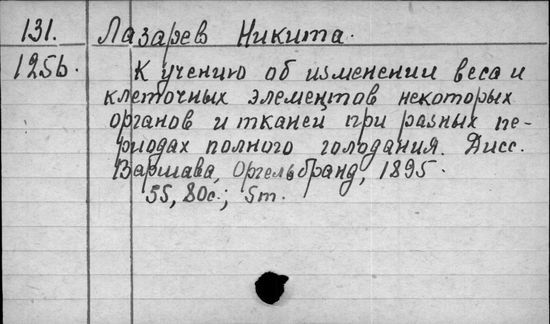 131. Лазарев Никита.
125b. К учению об изменении веса и
клеточных элементов некоторых
органов и тканей при разных пе-
риодах полного голодания. Дисс.
Варшава, Оргельбранд, 1895.
55, 80с.; 5т.